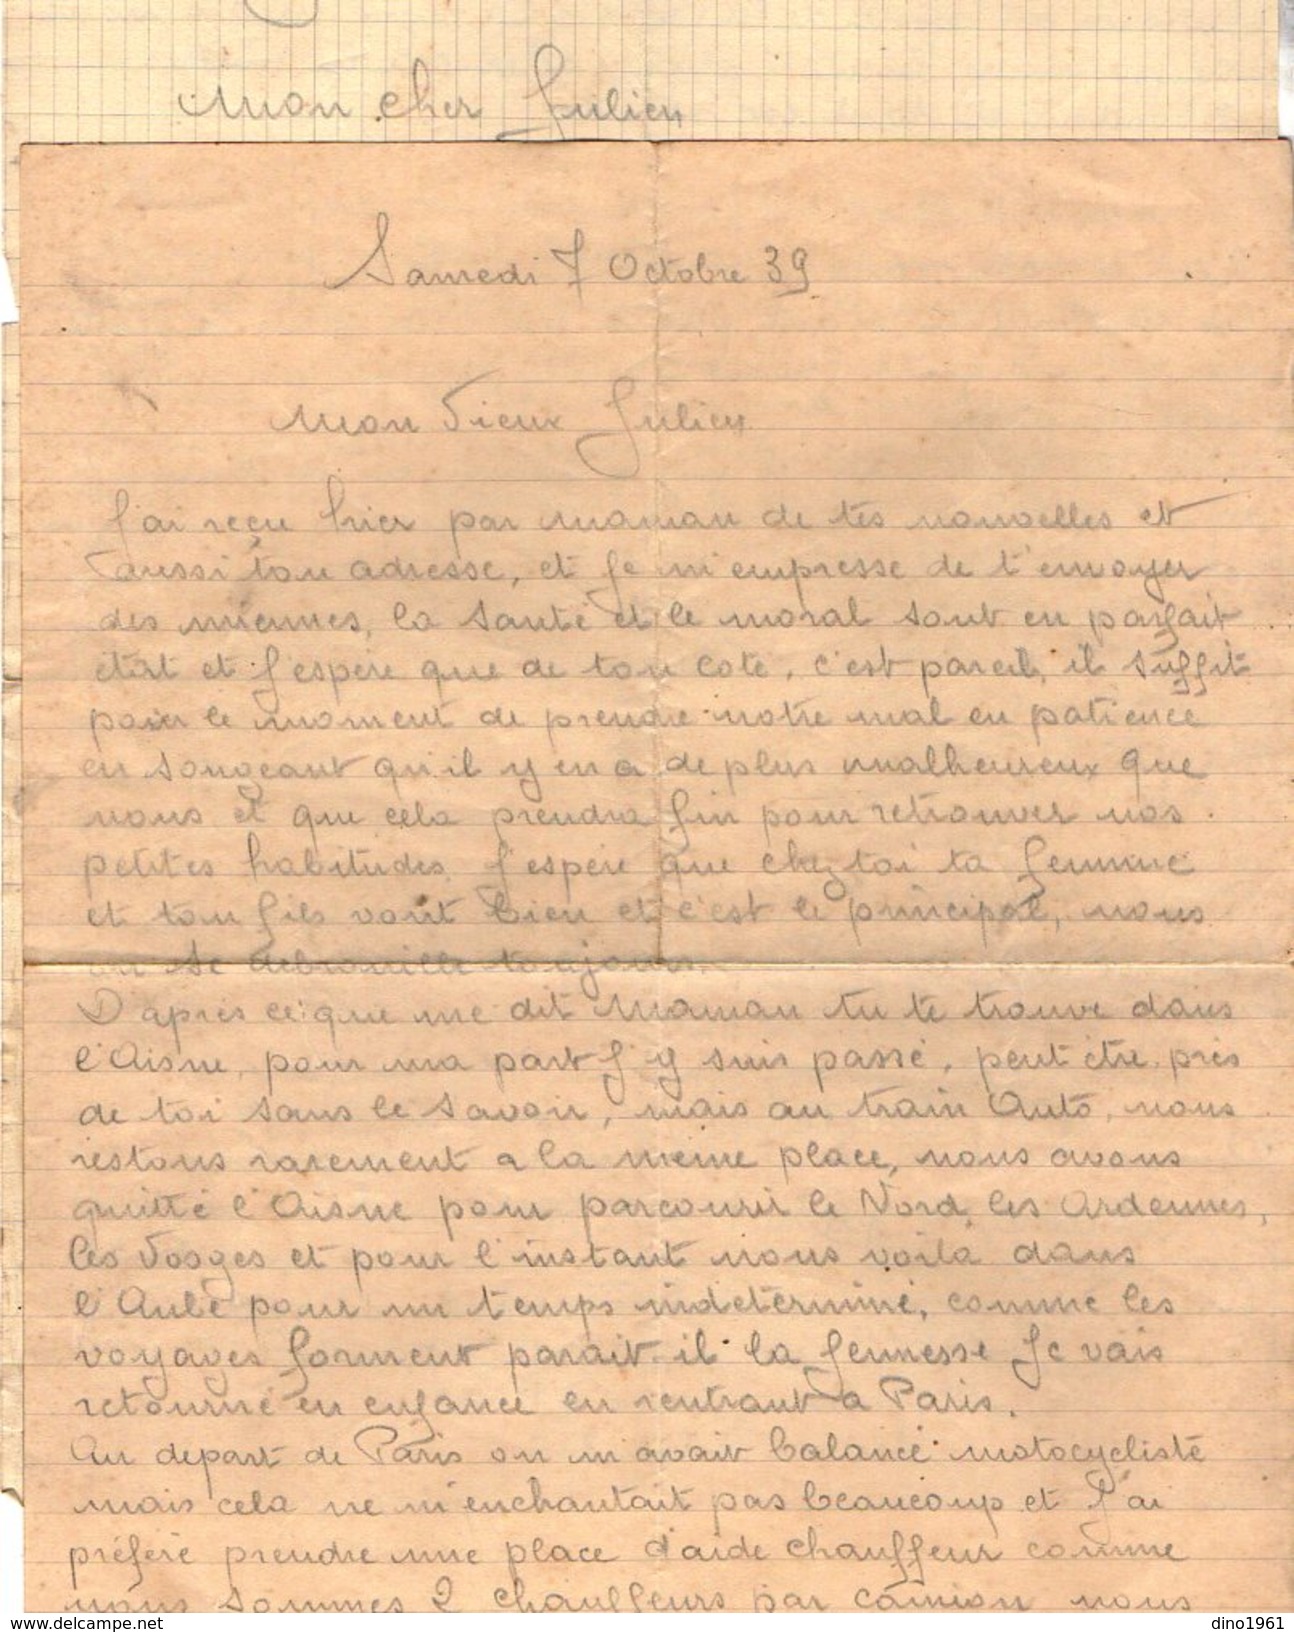 Mon cher Julien
Samedi 7 Octobre 39
Mon Vieux Julien
J'ai reçu hier par maman de tes nouvelles et
aussi ton adresse, et je m'empresse de t'envoyer
des miennes, la santé et le moral sont en parfait
état et j'espère que de ton coté, c'est pareil, il suffit
pour le moment de prendre notre mal en patience
en songeant qu'il y en a de plus malheureux que
nous et que cela prendra fin pour retrouver nos
petites habitudes. J'espère que chez toi ta femme
et ton fils vont bien et c'est le principal, nous
on se débrouille toujours.
D'après ce que me dit Maman tu te trouve dans
l'Aisne, pour ma part j'y suis passé, peut être près
de toi sans le savoir, mais au train Auto, nous
restons rarement a la même place, nous avons
quitté l'Aisne pour parcourir le Nord, les Ardennes,
les Vosges et pour l'instant nous voilà dans
l'Aube pour un temps indéterminé, comme les
voyages forment parait-il la jeunesse Je vais
retourné en enfance en rentrant a Paris.
Au depart de Paris on m'avait balancé motocycliste
mais cela ne m'enchantait pas beaucoup et j'ai
préféré prendre une place d'aide chauffeur comme
nous sommes 2 chauffeurs par camion nous
dino1961